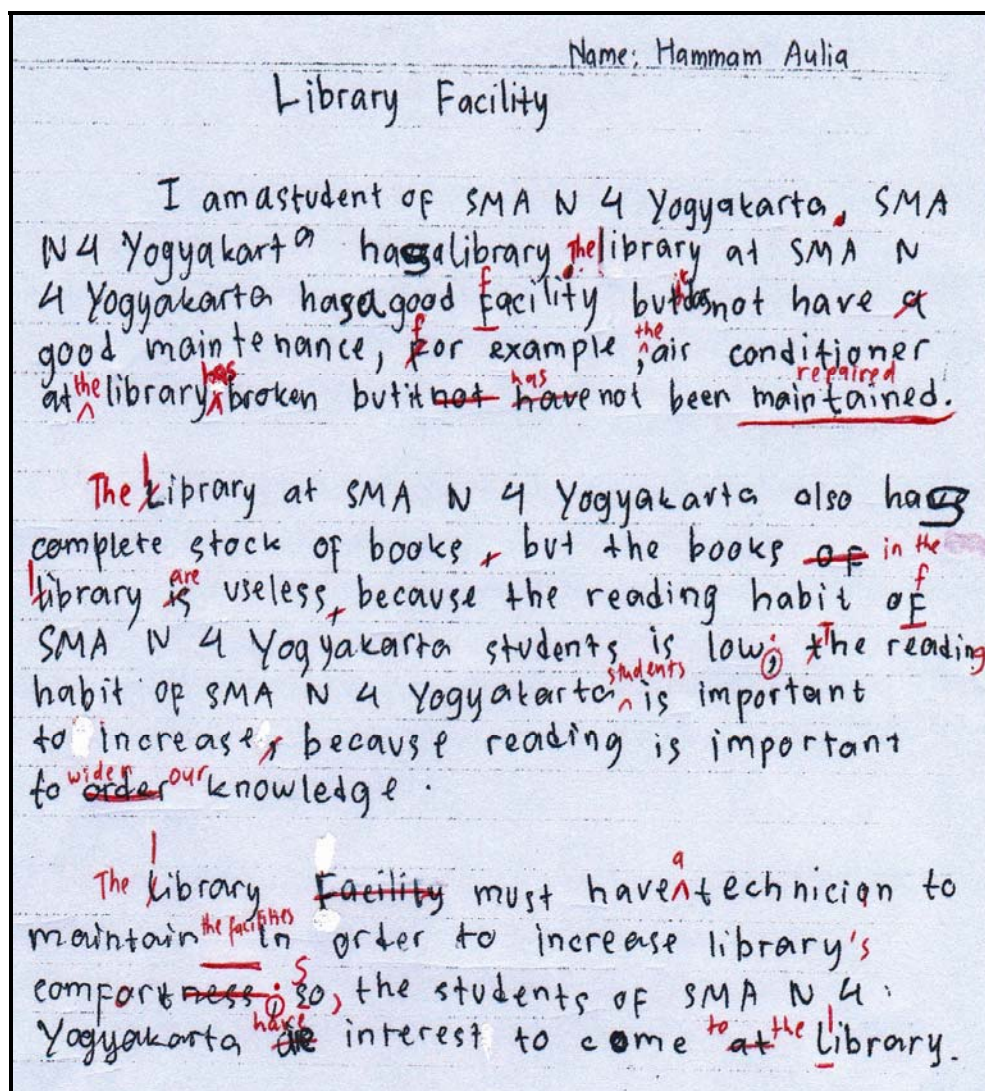 Name: Hammam Aulia
Library Facility
I am a student of SMA N 4 Yogyakarta. SMA
N 4 Yogyakarta has a library. The library at SMA N
4 Yogyakarta has a good facility but does not have a
good maintenance, for example, the air conditioner
at the library has broken but it not have has not been maintained. repaired
The library at SMA N 4 Yogyakarta also has
complete stock of books, but the books of in the
library is are useless, because the reading habit of
SMA N 4 Yogyakarta students is low. The reading
habit of SMA N 4 Yogyakarta students is important
to increase, because reading is important
to order widen our knowledge.
The library Facility must have a technician to
maintain the facilities in order to increase library's
compfortness. So, the students of SMA N 4
Yogyakarta are have interest to come at to the library.